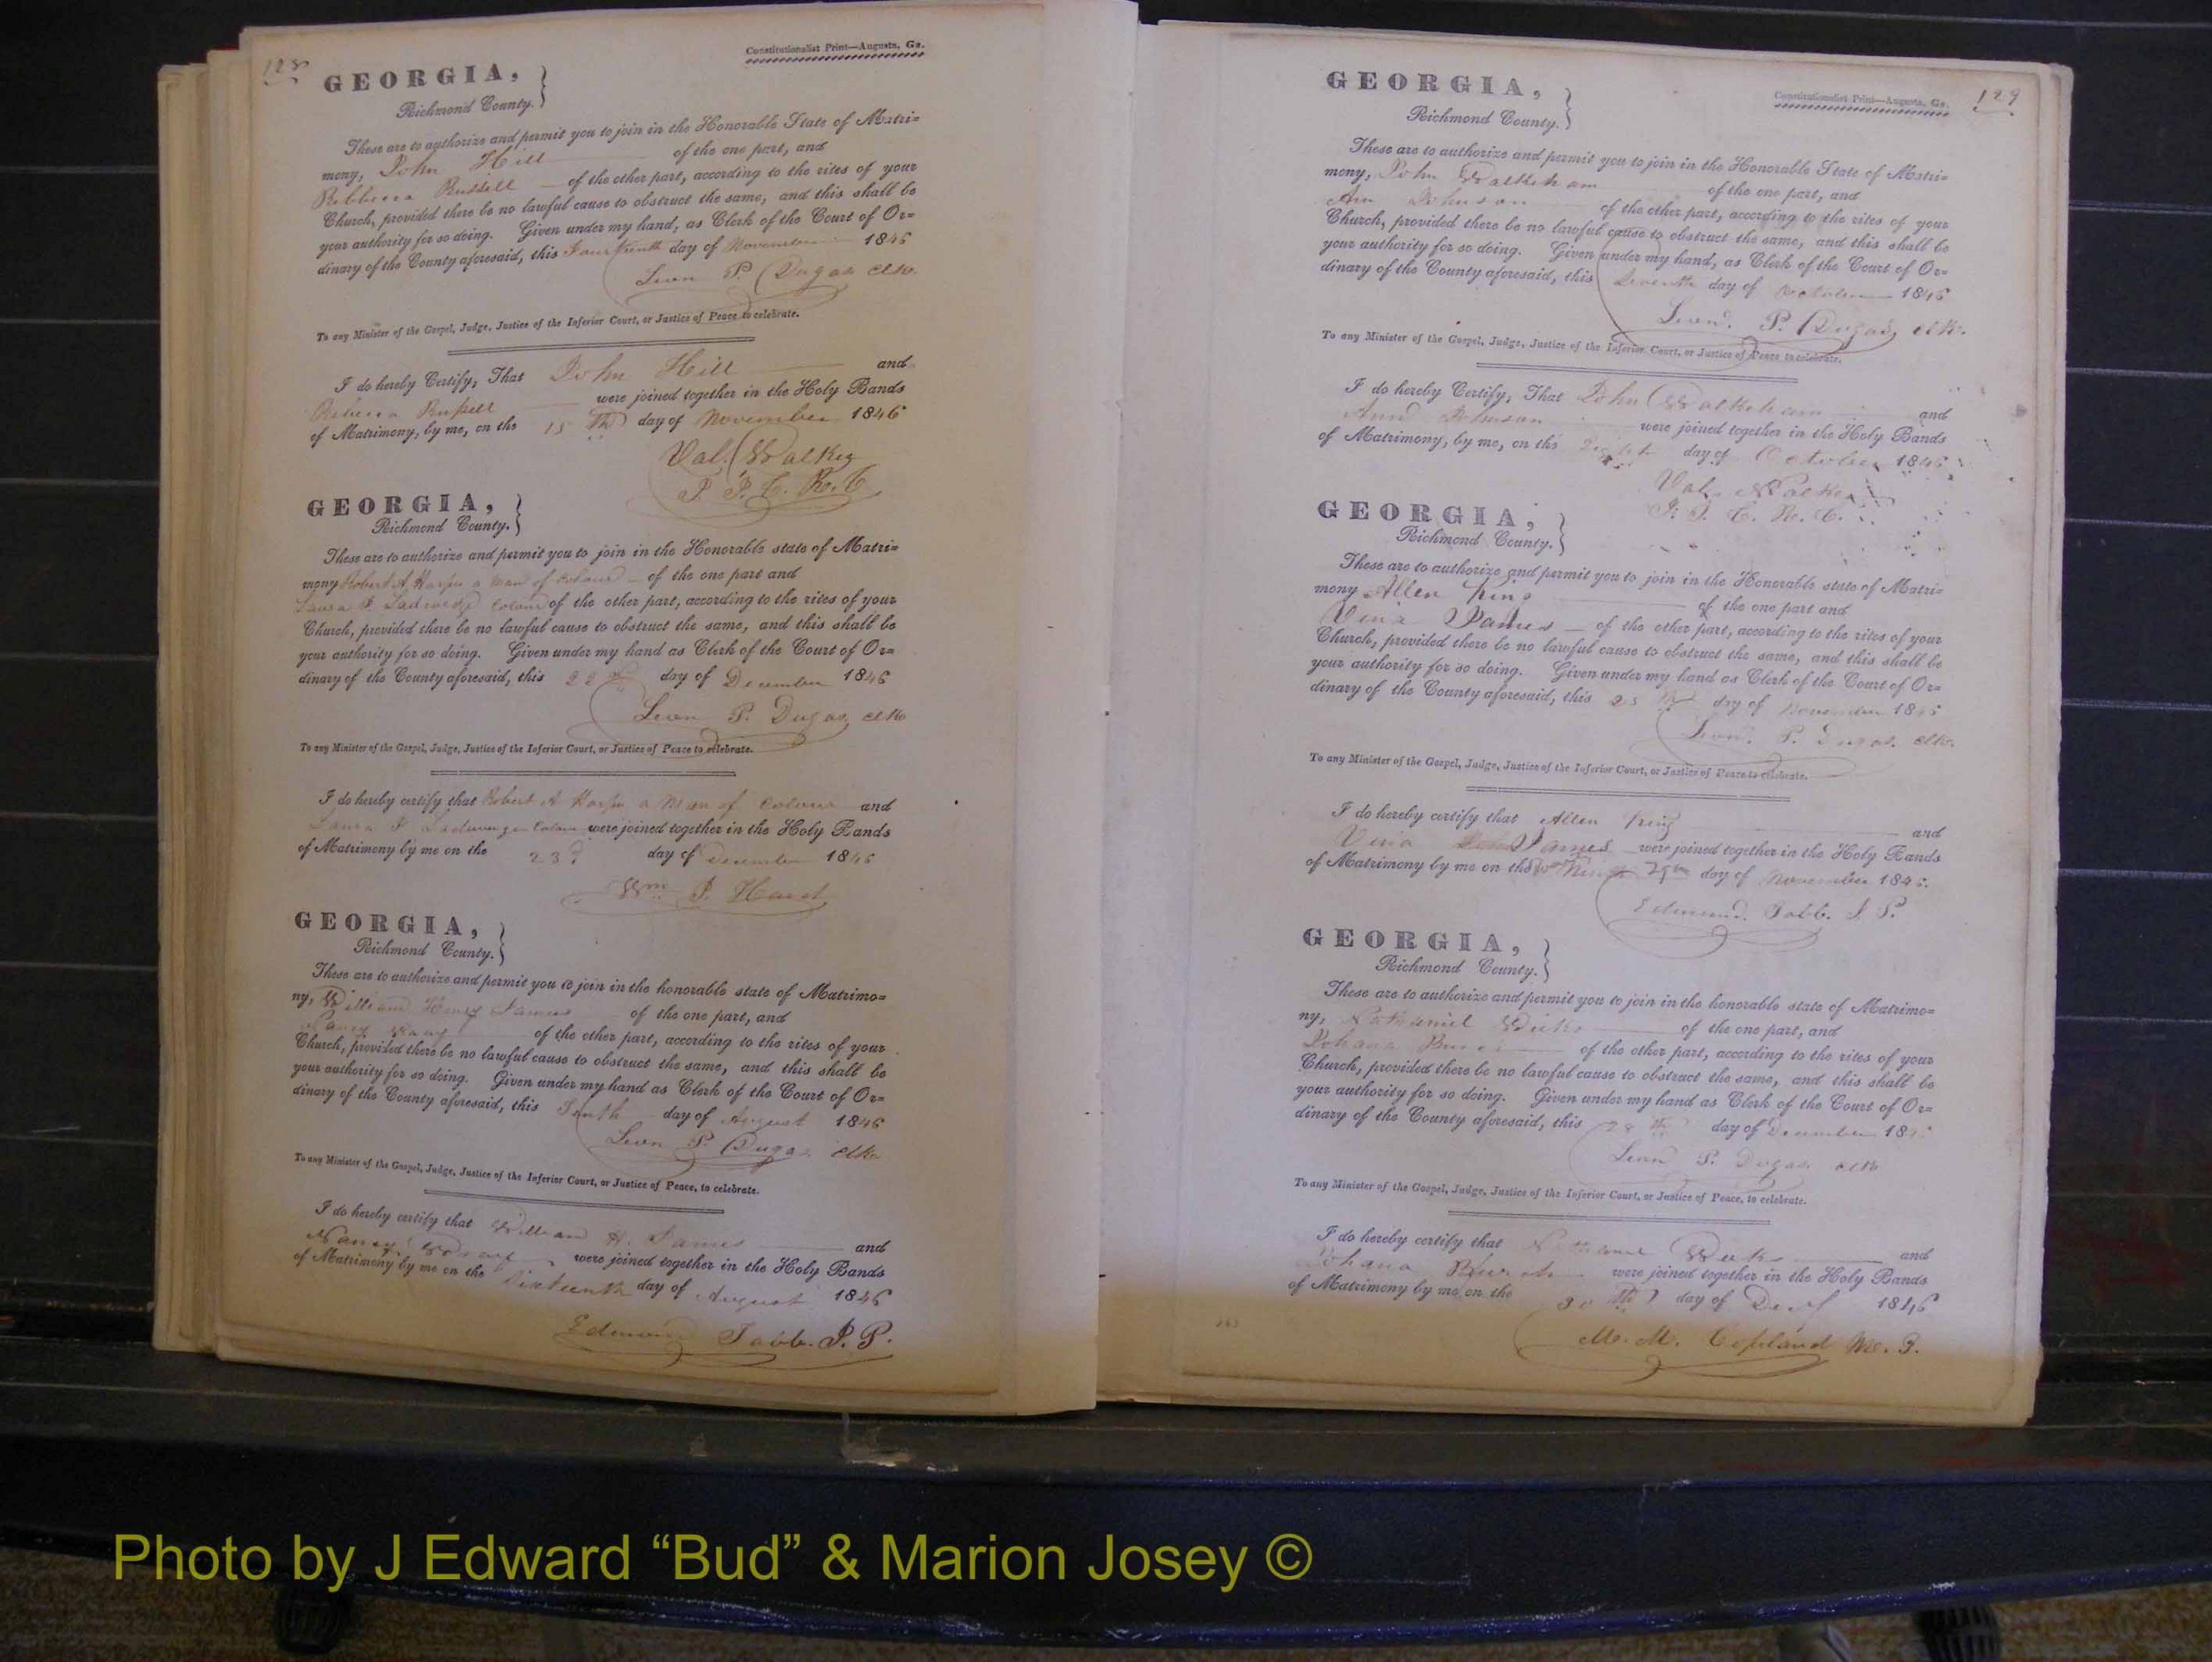 128
Constitutionalist Print—Augusta, Ga.
GEORGIA,
Richmond County.
These are to authorize and permit you to join in the Honorable State of Matri=
mony, John Hill of the one part, and
Rebbecca Russell of the other part, according to the rites of your
Church, provided there be no lawful cause to obstruct the same, and this shall be
your authority for so doing. Given under my hand, as Clerk of the Court of Or=
dinary of the County aforesaid, this Fourteenth day of November 1846
Leon P. Dugas Clk.
To any Minister of the Gospel, Judge, Justice of the Inferior Court, or Justice of Peace to celebrate.
I do hereby Certify, That John Hill and
Rebecca Russell were joined together in the Holy Bands
of Matrimony, by me, on the 15th day of November 1846
Val. Walker
J. I. C. R. C.
GEORGIA,
Richmond County.
These are to authorize and permit you to join in the Honorable state of Matri=
mony Robert A Harper a man of colour of the one part and
Laura F. colour of the other part, according to the rites of your
Church, provided there be no lawful cause to obstruct the same, and this shall be
your authority for so doing. Given under my hand as Clerk of the Court of Or=
dinary of the County aforesaid, this 22 day of December 1846
Leon P. Dugas Clk
To any Minister of the Gospel, Judge, Justice of the Inferior Court, or Justice of Peace to celebrate.
I do hereby certify that Robert A Harper a man of colour and
Laura F colour were joined together in the Holy Bands
of Matrimony by me on the 23d day of December 1846
Wm J. Hard
GEORGIA,
Richmond County.
These are to authorize and permit you to join in the honorable state of Matrimo=
ny, William Henry James of the one part, and
Nancy Wray of the other part, according to the rites of your
Church, provided there be no lawful cause to obstruct the same, and this shall be
your authority for so doing. Given under my hand as Clerk of the Court of Or=
dinary of the County aforesaid, this Tenth day of August 1846
Leon P. Dugas Clk
To any Minister of the Gospel, Judge, Justice of the Inferior Court, or Justice of Peace, to celebrate.
I do hereby certify that William H. James and
Nancy Wray were joined together in the Holy Bands
of Matrimony by me on the Sixteenth day of August 1846
Edmund Tabb. J. P.
129
Constitutionalist Print—Augusta, Ga.
GEORGIA,
Richmond County.
These are to authorize and permit you to join in the Honorable State of Matri=
mony, John of the one part, and
Ann Johnson of the other part, according to the rites of your
Church, provided there be no lawful cause to obstruct the same, and this shall be
your authority for so doing. Given under my hand, as Clerk of the Court of Or=
dinary of the County aforesaid, this Seventh day of October 1846
Leon. P. Dugas, Clk.
To any Minister of the Gospel, Judge, Justice of the Inferior Court, or Justice of Peace to celebrate.
I do hereby Certify, That John and
Ann Johnson were joined together in the Holy Bands
of Matrimony, by me, on the day of October 1846
Val. Walker
J. I. C. R. C.
GEORGIA,
Richmond County.
These are to authorize and permit you to join in the Honorable state of Matri=
mony Allen King of the one part and
Vina James of the other part, according to the rites of your
Church, provided there be no lawful cause to obstruct the same, and this shall be
your authority for so doing. Given under my hand as Clerk of the Court of Or=
dinary of the County aforesaid, this day of November 1846
Leon. P. Dugas. Clk.
To any Minister of the Gospel, Judge, Justice of the Inferior Court, or Justice of Peace to celebrate.
I do hereby certify that Allen King and
Vina James were joined together in the Holy Bands
of Matrimony by me on the 29th day of November 1846.
Edmund. Tabb. J. P.
GEORGIA,
Richmond County.
These are to authorize and permit you to join in the honorable state of Matrimo=
ny, Nathaniel of the one part, and
Johana of the other part, according to the rites of your
Church, provided there be no lawful cause to obstruct the same, and this shall be
your authority for so doing. Given under my hand as Clerk of the Court of Or=
dinary of the County aforesaid, this 28th day of December 18
Leon P. Dugas Clk
To any Minister of the Gospel, Judge, Justice of the Inferior Court, or Justice of Peace, to celebrate.
I do hereby certify that and
Johana were joined together in the Holy Bands
of Matrimony by me on the 30th day of 1846
M. M. Copland
Photo by J Edward “Bud” & Marion Josey ©